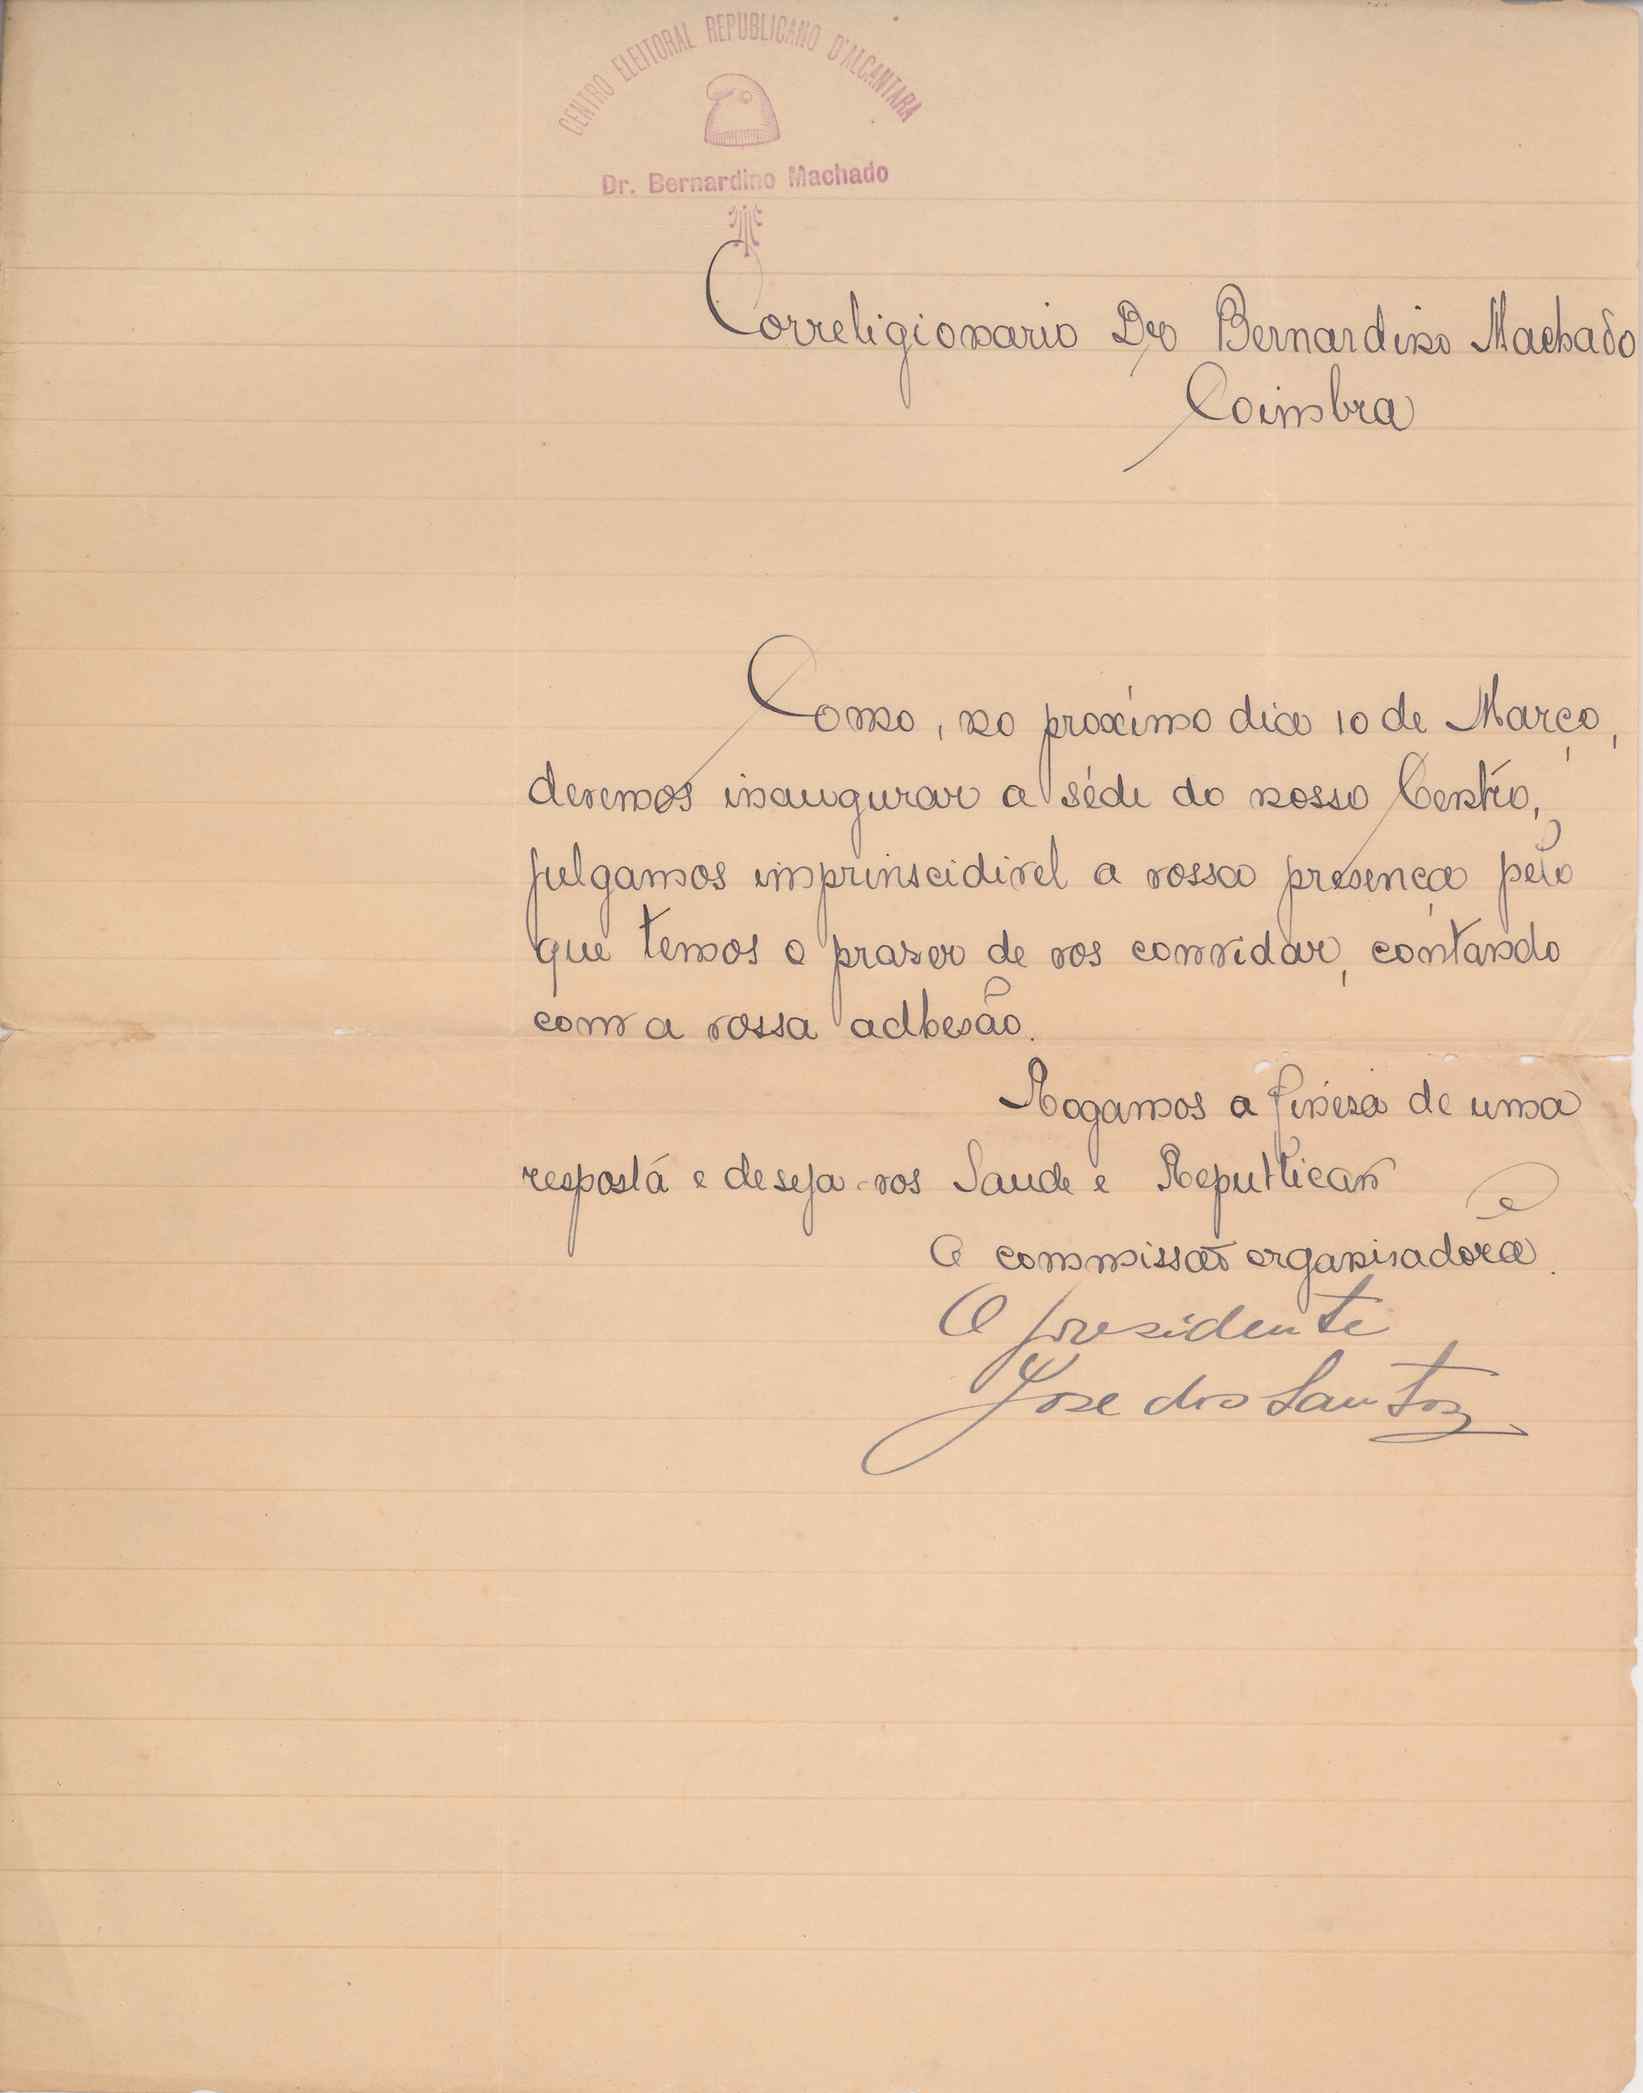 CENTRO ELEITORAL REPUBLICANO D'ALCANTARA
Dr. Bernardino Machado
Correligionario Dro Bernardino Machado
Coimbra
Como, no proximo dia 10 de Março,
devemos inaugurar a séde do nosso Centro,
julgamos imprinscidivel a vossa presença pelo
que temos o praser de vos convidar, contando
com a vossa adhesão.
Rogamos a finesa de uma
resposta e deseja-vos Saude e Republica
A commissão organisadora.
O presidente
Jose dos Santos